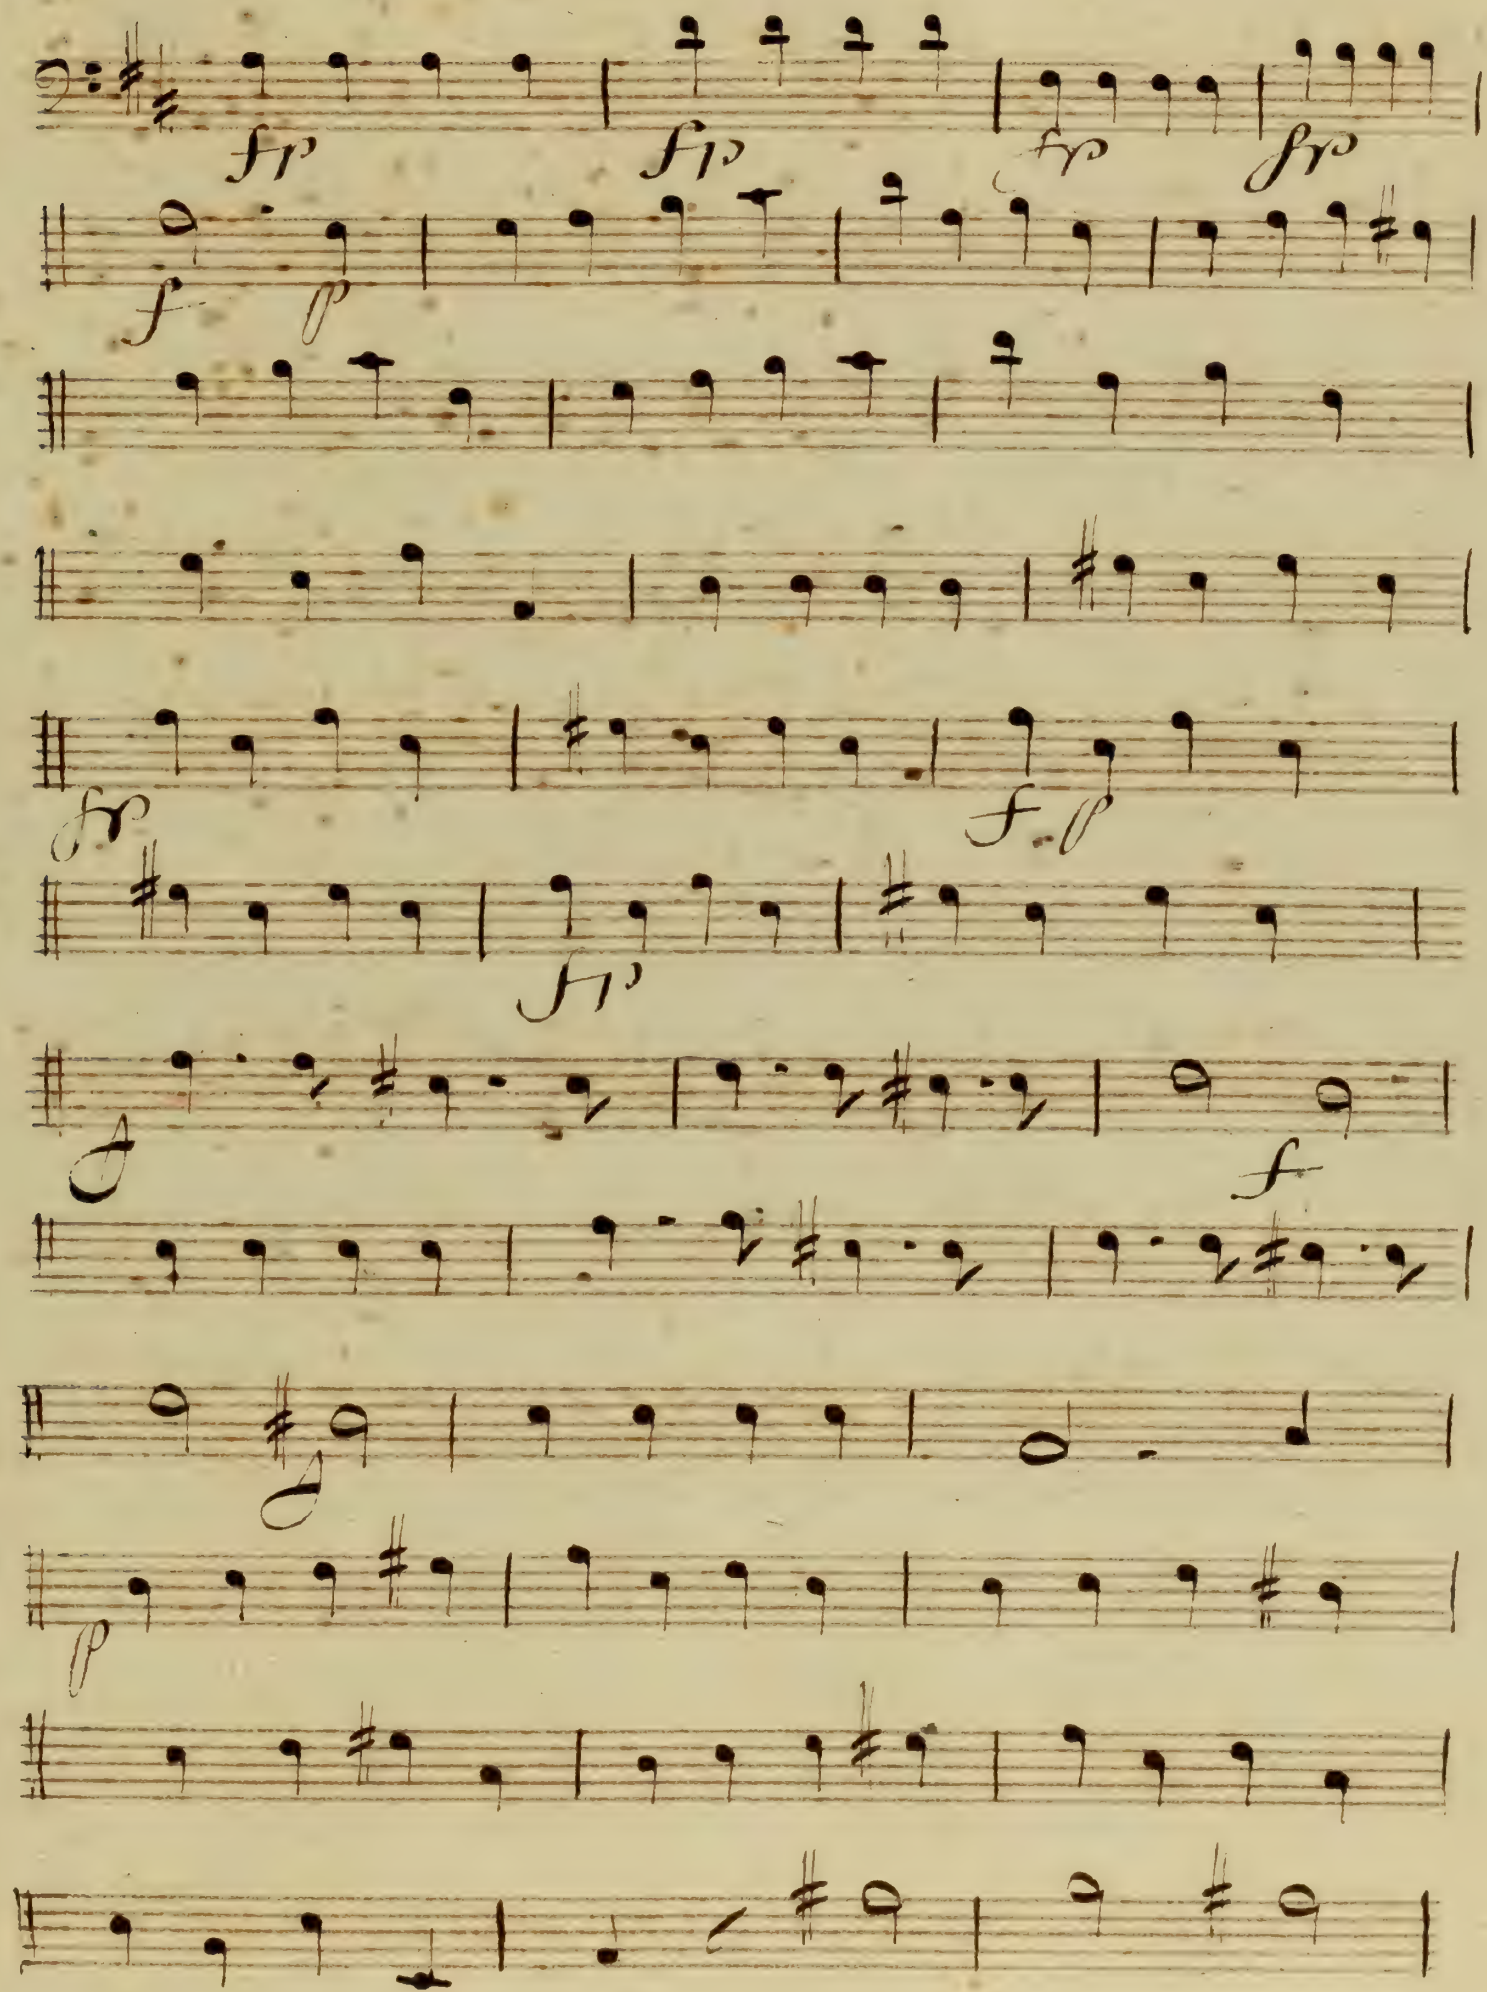 fp fp fp fp
f p
fp f p
fp
f
p